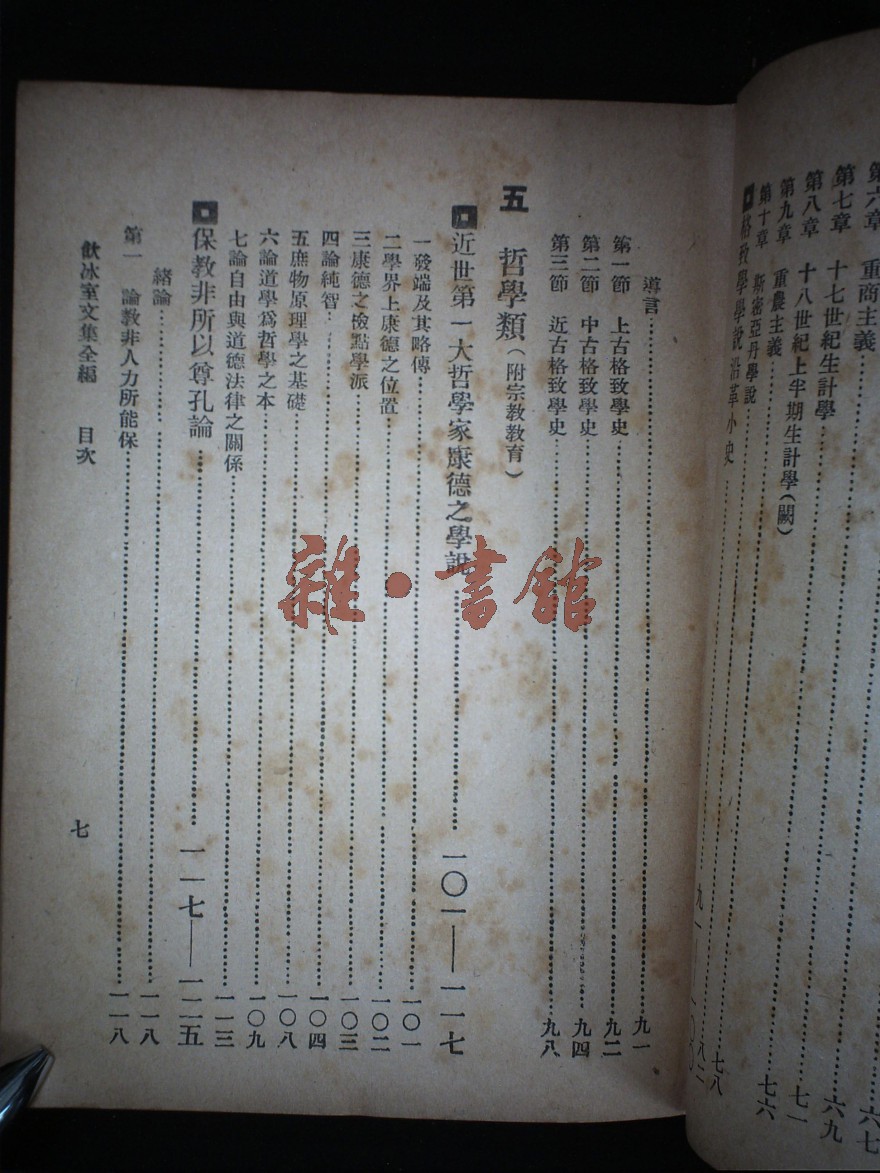 重商主義……六七
第七章 十七世紀生計學……六九
第八章 十八世紀上半期生計學(闕)
第九章 重農主義……七一
第十章 斯密亞丹學說……七六
格致學學說沿革小史
導言……九一
第一節 上古格致學史……九二
第二節 中古格致學史……九四
第三節 近古格致學史……九八
五 哲學類(附宗教教育)
近世第一大哲學家康德之學說……一〇一—一一七
一發端及其略傳……一〇一
二學界上康德之位置……一〇二
三康德之檢點學派……一〇三
四論純智……一〇四
五庶物原理學之基礎……一〇八
六論道學爲哲學之本……一〇九
七論自由與道德法律之關係……一一三
保教非所以尊孔論……一一七—一二五
緒論……一一八
第一 論教非人力所能保……一一八
飲冰室文集全編 目次
七
雜·書館